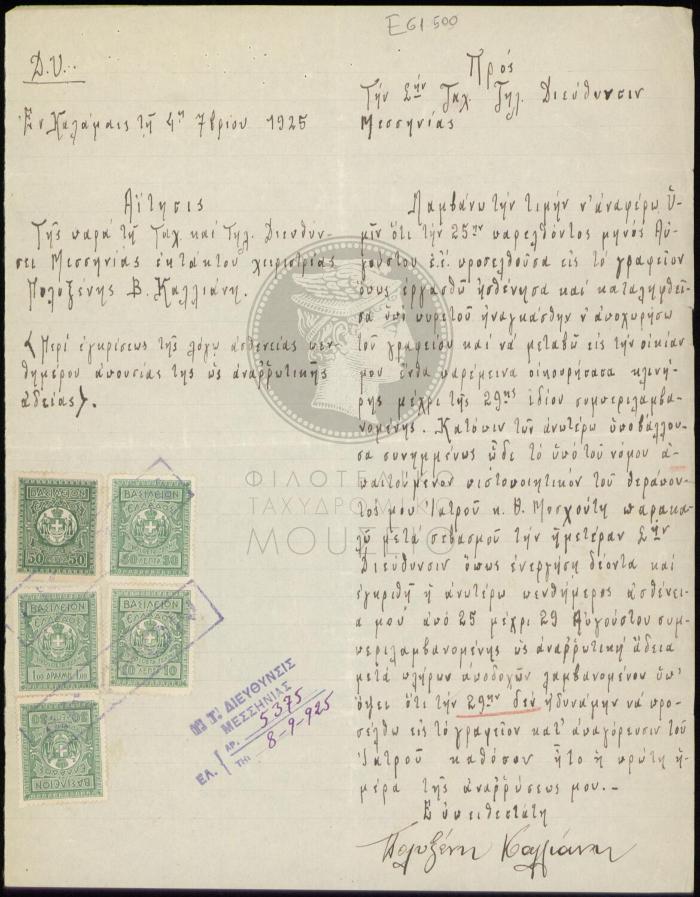 EGI.500
Δ.Υ.
Ἐν Καλάμαις τῇ 4ῃ 7βρίου 1925
Πρός
Τήν Σήν Ταχ. Τηλ. Διεύθυνσιν
Μεσσηνίας
Αἴτησις
Τῆς παρά τῇ Ταχ. καί Τηλ. Διευθύν-
σει Μεσσηνίας ἐκτάκτου χειριστρίας
Πολυξένης Β. Καλλιάνη.
〈Περί ἐγκρίσεως τῆς λόγῳ ἀσθενείας πεν-
θημέρου ἀπουσίας της ὡς ἀναρρωτικῆς
ἀδείας〉.
Λαμβάνω τήν τιμήν ν' ἀναφέρω Ὑ-
μῖν ὅτι τήν 25ην παρελθόντος μηνός Αὐ-
γούστου ἐ.ἔ. προσελθοῦσα εἰς τό γραφεῖον
ὅπως ἐργασθῶ ἠσθένησα καί καταληφθεῖ-
σα ὑπό πυρετοῦ ἠναγκάσθην ν' ἀποχωρήσω
τοῦ γραφείου καί νά μεταβῶ εἰς τήν οἰκίαν
μου ἔνθα παρέμεινα οἰκουρήσασα κλινή-
ρης μέχρι τῆς 29ης ἰδίου συμπεριλαμβα-
νομένης. Κατόπιν τῶν ἀνωτέρω ὑποβάλλου-
σα συνημμένως ὧδε τό ὑπό τοῦ νόμου ἀ-
παιτούμενον πιστοποιητικόν τοῦ θεράπον-
τος μου Ἰατροῦ κ. Θ. Μοσχούτη παρακα-
λῶ μετά σεβασμοῦ τήν ἡμετέραν Σήν
Διεύθυνσιν ὅπως ἐνεργήσῃ δέοντα καί
ἐγκριθῇ ἡ ἀνωτέρω πενθήμερος ἀσθένει-
α μου ἀπό 25 μέχρι 29 Αὐγούστου συμ-
περιλαμβανομένης ὡς ἀναρρωτική ἄδεια
μετά πλήρων ἀποδοχῶν λαμβανομένου ὑπ'
ὄψει ὅτι τήν 29ην δέν ἠδυνάμην νά προ-
σέλθω εἰς τό γραφεῖον κατ' ἀπαγόρευσιν τοῦ
Ἰατροῦ καθόσον ἦτο ἡ πρώτη ἡ-
μέρα τῆς ἀναρρώσεως μου.-
Εὐπειθεστάτη
Πολυξένη Καλλιάνη
ΦΙΛΟΤΕΛΙΚΟ
ΤΑΧΥΔΡΟΜΙΚΟ
ΜΟΥΣΕΙΟ
ΒΑΣΙΛΕΙΟΝ
ΕΛΛΑΔΟΣ
50 50
ΒΑΣΙΛΕΙΟΝ
ΕΛΛΑΔΟΣ
30 ΛΕΠΤΑ 30
ΒΑΣΙΛΕΙΟΝ
ΕΛΛΑΔΟΣ
1.00 ΔΡΑΧΜΗ 1.00
ΒΑΣΙΛΕΙΟΝ
ΕΛΛΑΔΟΣ
10 ΛΕΠΤΑ 10
ΒΑΣΙΛΕΙΟΝ
ΕΛΛΑΔΟΣ
Τ Τ ΔΙΕΥΘΥΝΣΙΣ
ΜΕΣΣΗΝΙΑΣ
ΕΛ. ΑΡ. 5375
ΤΗι 8-9-925